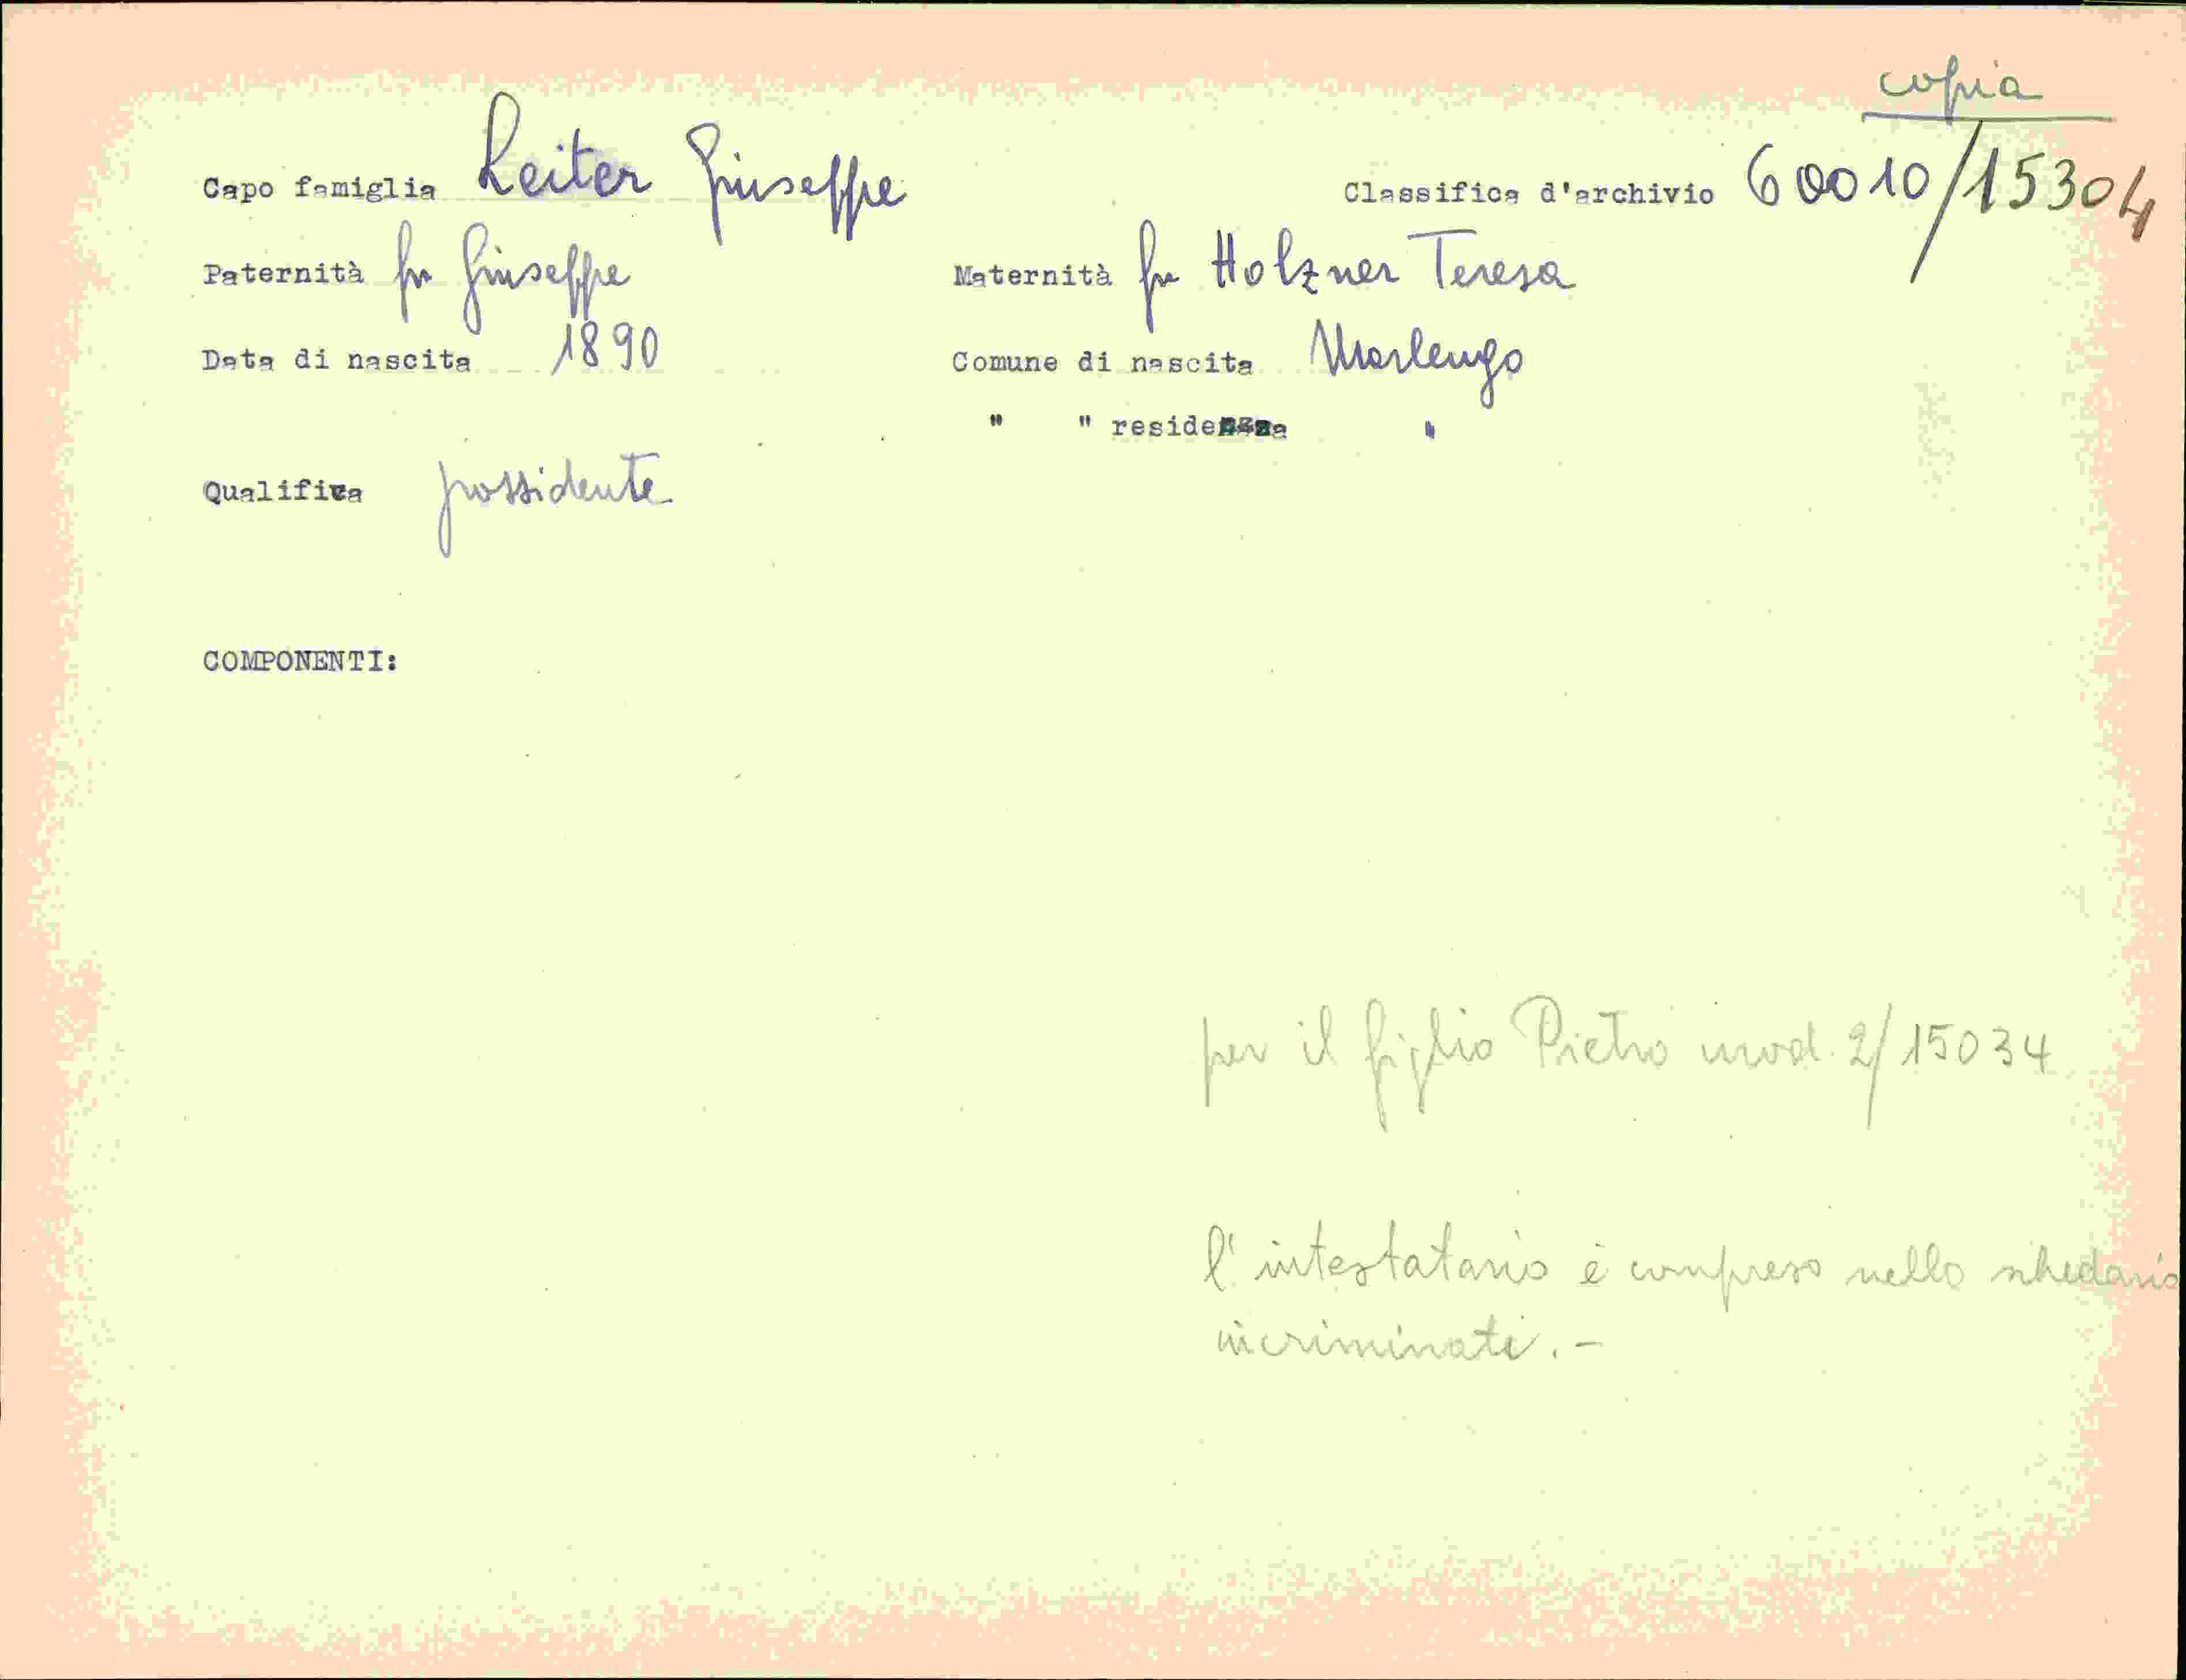 copia
Capo famiglia Leiter Giuseppe Classifica d'archivio 60010/15304
Paternità fu Giuseppe Maternità fu Holzner Teresa
Data di nascita 1890 Comune di nascita Marlengo
" " residenza "
Qualifica possidente
COMPONENTI:
per il figlio Pietro mod. 2/15034
l'intestatario è compreso nello schedario
incriminati.-